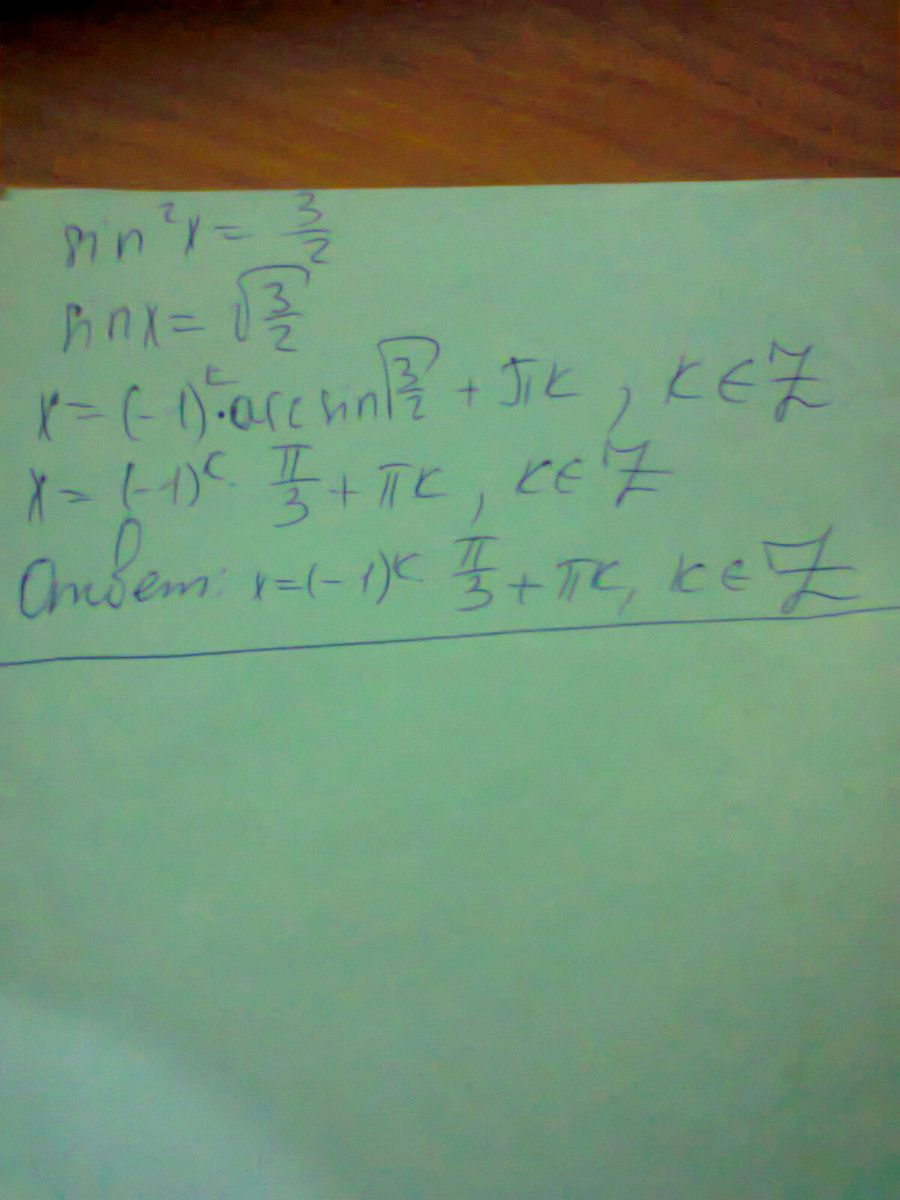 sin²x = 3/2
sinx = √(3/2)
x = (-1)ᵏ · arcsin √(3/2) + πk , k ∈ Z
x = (-1)ᵏ · π/3 + πk , k ∈ Z
Ответ: x = (-1)ᵏ π/3 + πk, k ∈ Z